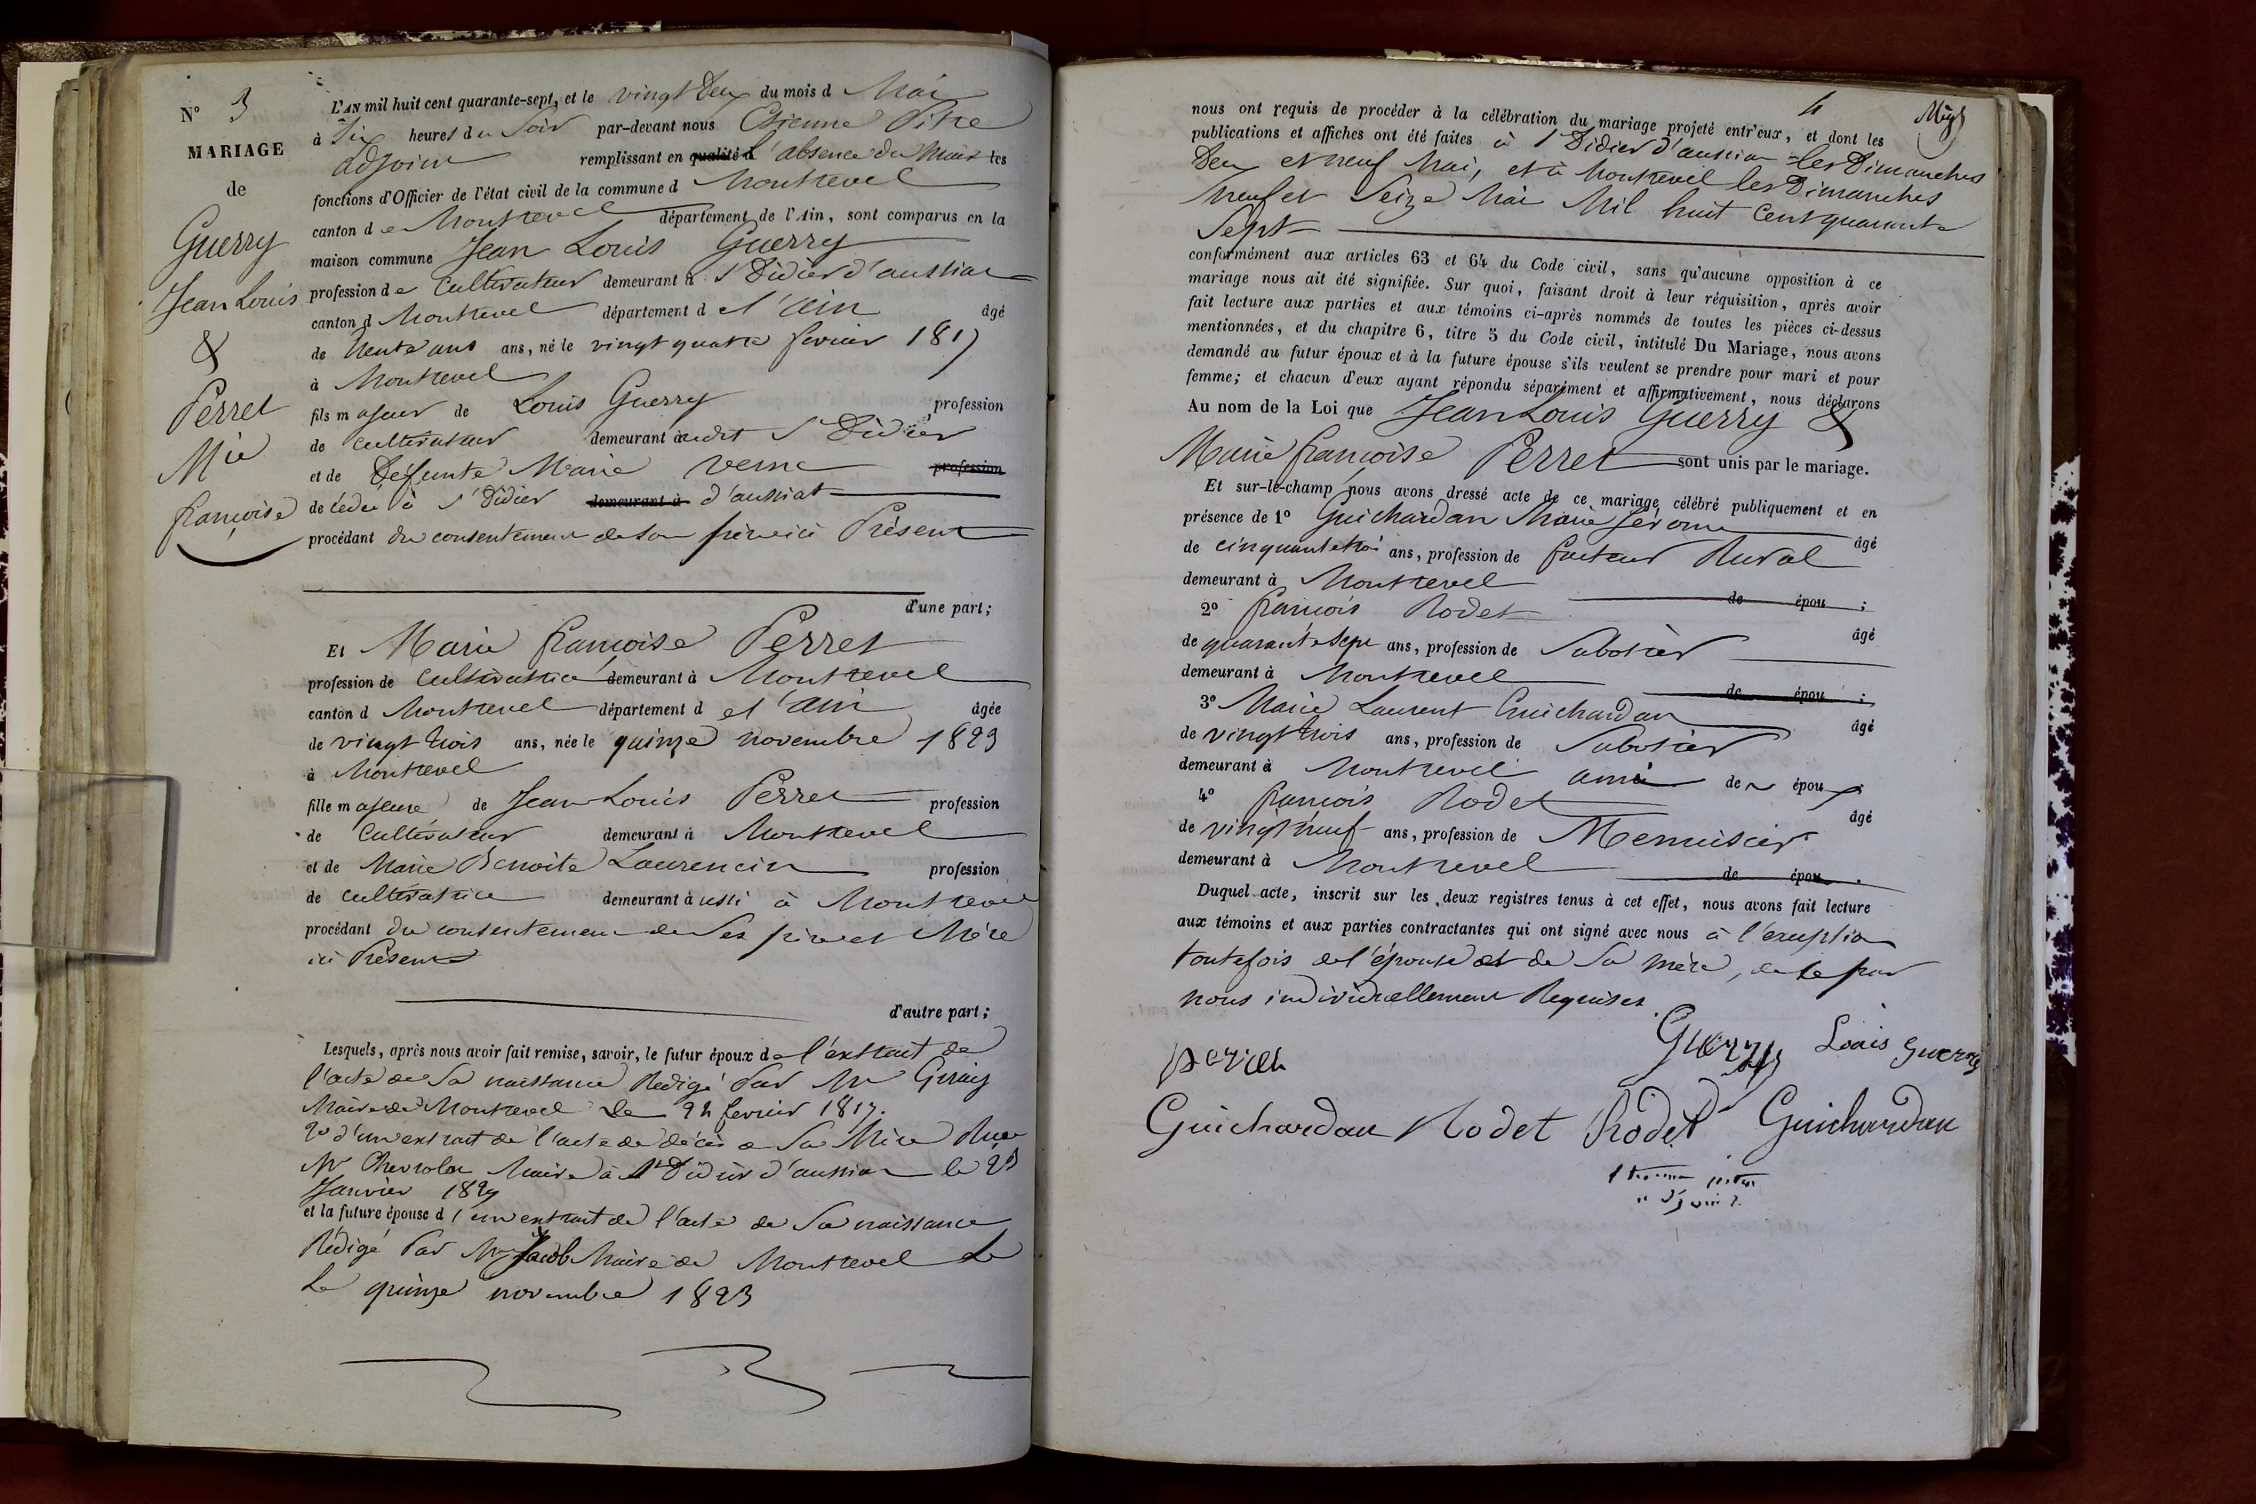 N° 3
MARIAGE
de
Guerry
Jean Louis
&
Perret
Mie
françoise
L'AN mil huit cent quarante-sept, et le vingt deux du mois d Mai
à Six heures du Soir par-devant nous Etienne Pitre
adjoint remplissant en qualité d l'absence du Maire les
fonctions d'Officier de l'état civil de la commune d Montrevel
canton de Montrevel département de l'Ain, sont comparus en la
maison commune Jean Louis Guerry
profession de Cultivateur demeurant à St Didier d'aussiat
canton d Montrevel département de l'ain âgé
de trente ans ans, né le vingt quatre fevrier 1817
à Montrevel
fils majeur de Louis Guerry profession
de cultivateur demeurant audit St Didier
et de Défunte Marie Verne profession
décédée à St Didier demeurant à d'aussiat
procédant du consentement de son père ici Présent
d'une part;
Et Marie françoise Perret
profession de Cultivatrice demeurant à Montrevel
canton d Montrevel département de l'ain âgée
de vingt trois ans, née le quinze novembre 1823
à Montrevel
fille majeure de Jean Louis Perret profession
de Cultivateur demeurant à Montrevel
et de Marie Benoite Laurencin profession
de cultivatrice demeurant aussi à Montrevel
procédant du consentement de Ses père et Mère
ici Présents
d'autre part;
Lesquels, après nous avoir fait remise, savoir, le futur époux de l'extrait de
l'acte de Sa naissance Redigé Par Mr
Maire de Montrevel le 24 fevrier 1817.
2° d'un extrait de l'acte de décès de Sa Mère
Mr Maire à St Didier d'aussiat le 23
Janvier 1829
et la future épouse d'un extrait de l'acte de Sa naissance
Rédigé Par Mr Jacob Maire de Montrevel le
le quinze novembre 1823
4
nous ont requis de procéder à la célébration du mariage projeté entr'eux, et dont les
publications et affiches ont été faites à St Didier d'aussiat les Dimanches
Deux et neuf Mai, et à Montrevel les Dimanches
neuf et Seize Mai Mil huit Cent quarante
Sept
conformément aux articles 63 et 64 du Code civil, sans qu'aucune opposition à ce
mariage nous ait été signifiée. Sur quoi, faisant droit à leur réquisition, après avoir
fait lecture aux parties et aux témoins ci-après nommés de toutes les pièces ci-dessus
mentionnées, et du chapitre 6, titre 5 du Code civil, intitulé Du Mariage, nous avons
demandé au futur époux et à la future épouse s'ils veulent se prendre pour mari et pour
femme; et chacun d'eux ayant répondu séparément et affirmativement, nous déclarons
Au nom de la Loi que Jean Louis Guerry &
Marie françoise Perret sont unis par le mariage.
Et sur-le-champ nous avons dressé acte de ce mariage célébré publiquement et en
présence de 1° Guichardan Marie Jérome âgé
de cinquante trois ans, profession de facteur Rural
demeurant à Montrevel de épou ;
2° françois Rodet âgé
de quarante Sept ans, profession de Sabotier
demeurant à Montrevel de épou ;
3° Marie Laurent Guichardan âgé
de vingt trois ans, profession de Sabotier
demeurant à Montrevel ami de épou
4° françois Rodet âgé
de vingt neuf ans, profession de Menuisier
demeurant à Montrevel de épou .
Duquel acte, inscrit sur les deux registres tenus à cet effet, nous avons fait lecture
aux témoins et aux parties contractantes qui ont signé avec nous à l'exception
toutefois de l'épouse et de Sa mère, de ce par
nous individuellement Requises.
Guerry Louis Guerry
perret
Guichardan Rodet Rodet Guichardan